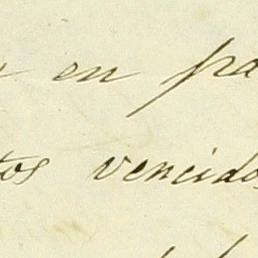 en pa
tos vencidos